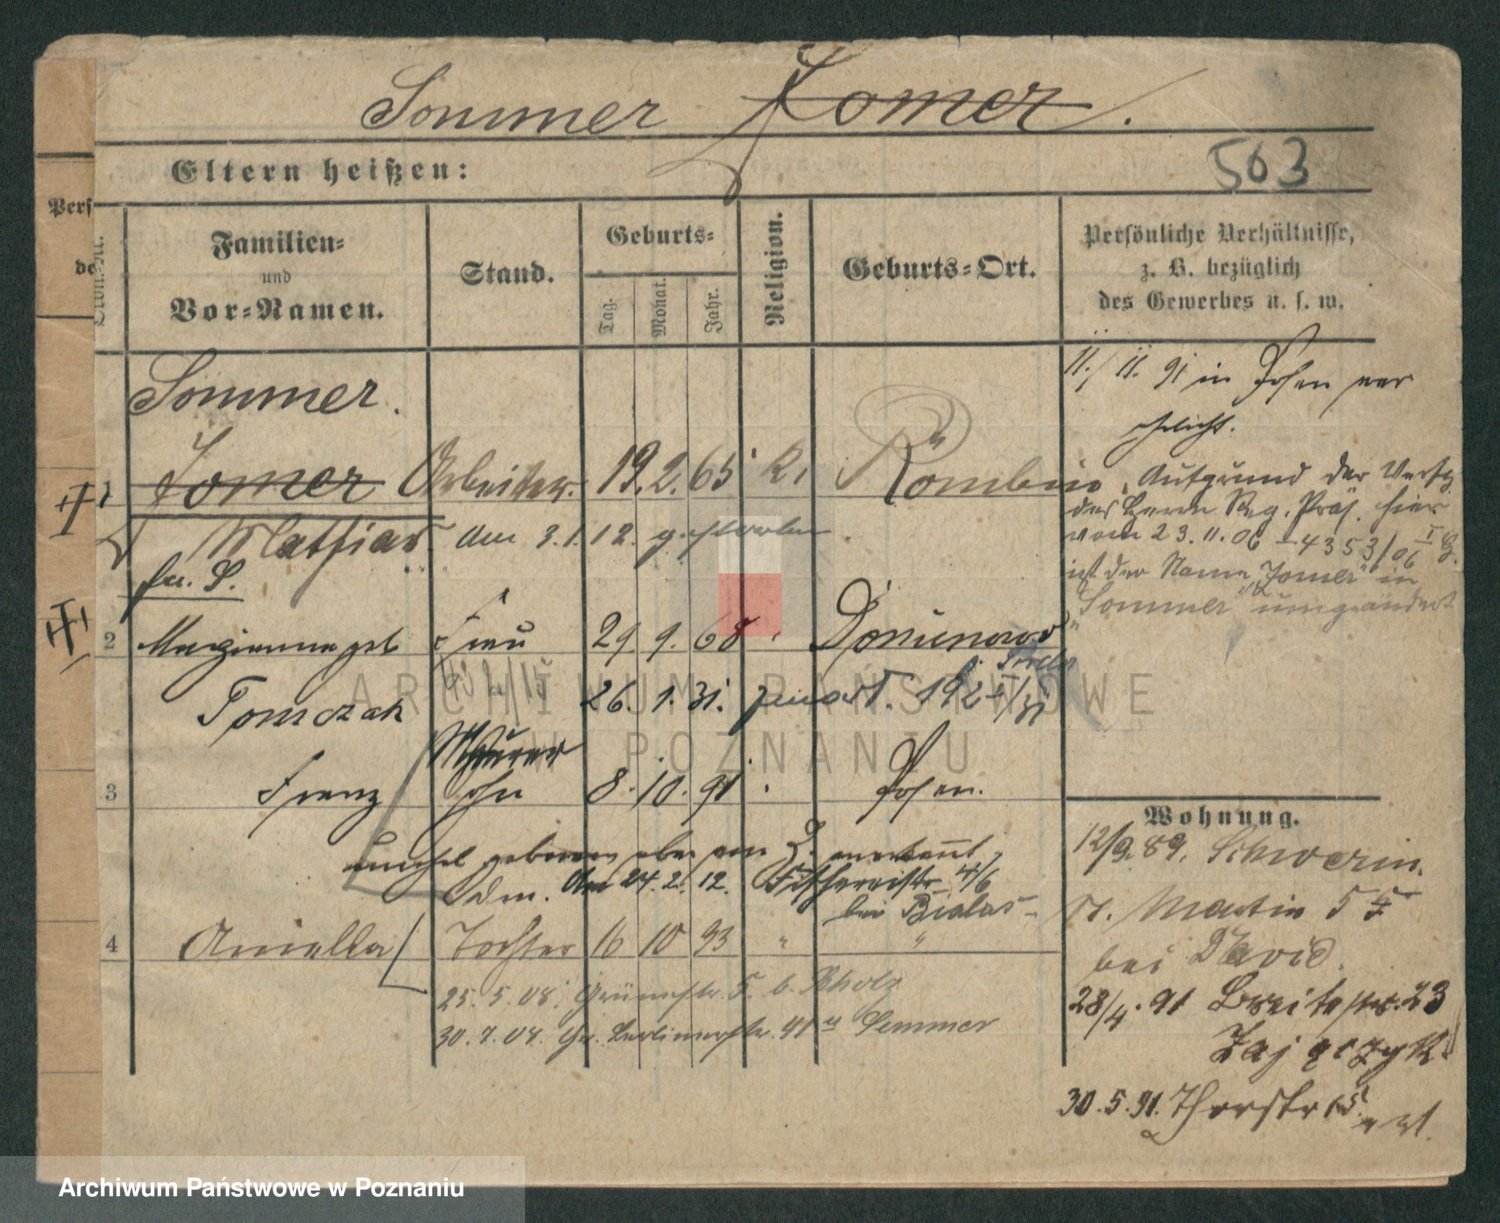 Sommer Zomer.
Eltern heißen:
503
Pers
de
Familien-
und
Vor-Namen.
Stand.
Geburts-
Tag.
Monat.
Jahr.
Religion.
Geburts-Ort.
Persönliche Verhältnisse,
z. B. bezüglich
des Gewerbes u. s. w.
11./11. 91 in Posen ver
ehelicht.
Sommer.
1 Zomer Arbeiter. 19. 2. 65
Mathias am 3.1.12. gestorben.
Aufgrund der Verfg
des Herrn Reg. Präs. hier
vom 23.11.06 4353/06 I
ist der Name "Zomer" in
"Sommer" umgeändert
2 geb Frau 29 9. 68
Tomczak 26. 1. 31.
3 Franz Sohn 8. 10. 91 Posen.
Maurer
unehel. geboren aber von Z. anerkannt,
Am 24. 2. 12. Fischereistr 4/6
bei Bialas
4 Aniella Tochter 16 10 93 " "
25. 5. 08.
30. 7. 08. Gr. Berlinerstr. 41 Sommer
Wohnung.
12/9. 89. Schwerin.
St. Martin 55
bei David.
28/4. 91 Breitestr. 23
Zajączyk.
30. 5. 91. Thorstr 15
ARCHIWUM PAŃSTWOWE
W POZNANIU
Archiwum Państwowe w Poznaniu